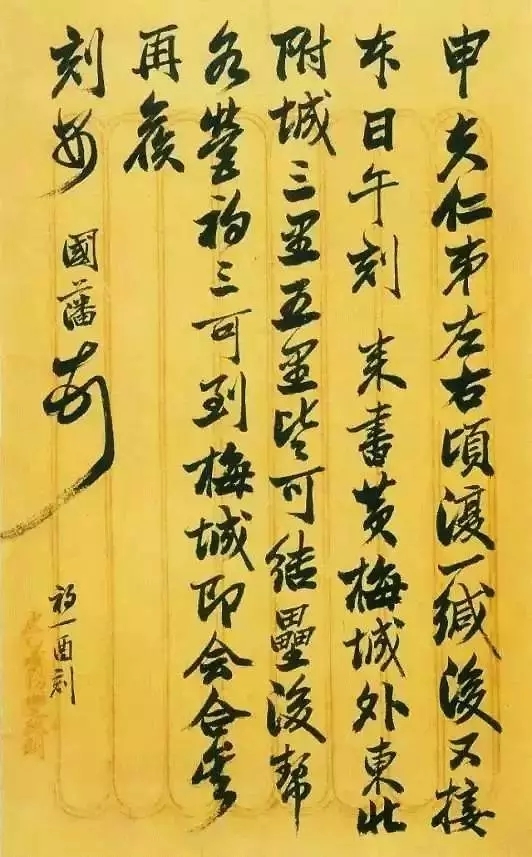 申夫仁弟左右頃復一緘後又接
本日午刻 来書黄梅城外東北
附城三里五里皆可結壘後幫
各營初三可到梅城即会合矣
再候
刻安 國藩
初一酉刻